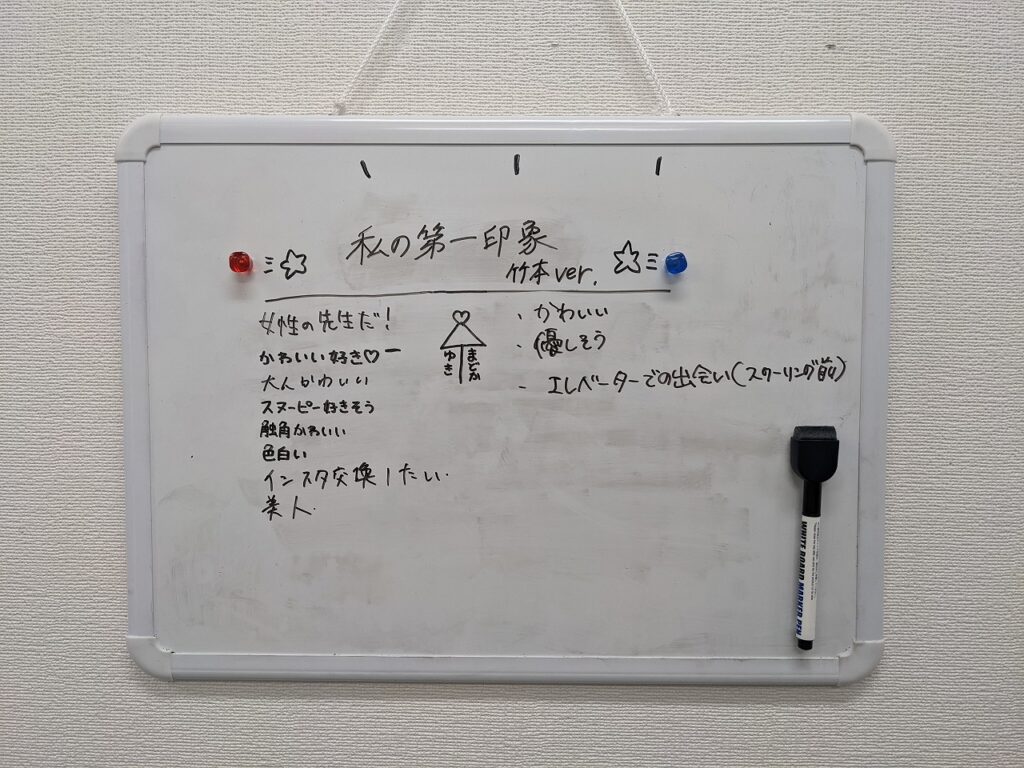 私の第一印象
竹本ver.
女性の先生だ!
かわいい好き♡ー
大人かわいい
スヌーピー好きそう
触角かわいい
色白い
インスタ交換したい.
美人.
ゆき
まどか
・かわいい
・優しそう
・エレベーターでの出会い(スクーリング前)
WHITE BOARD MARKER PEN